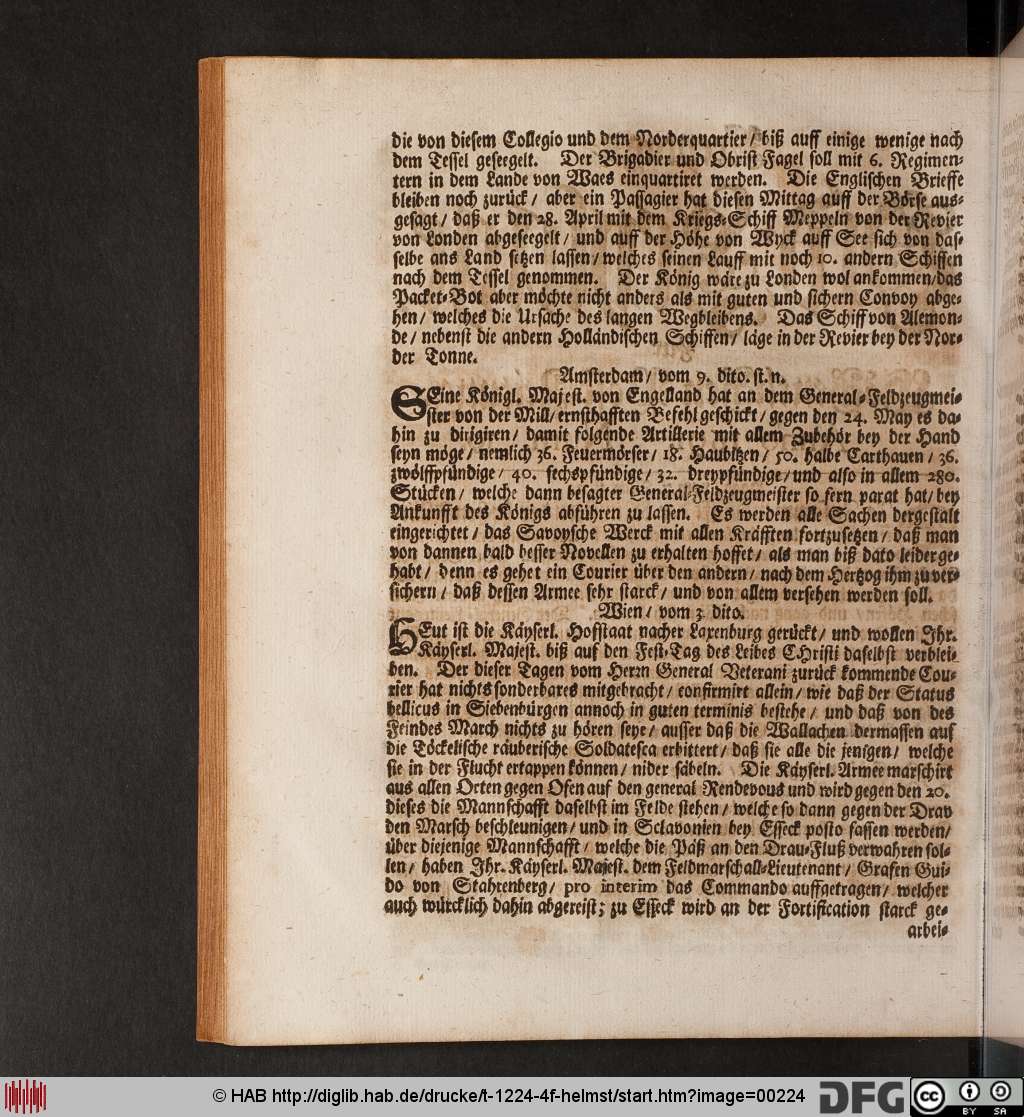 die von diesem Collegio und dem Norderquartier / biß auff einige wenige nach
dem Tessel geseegelt. Der Brigadier und Obrist Fagel soll mit 6. Regimen-
tern in dem Lande von Waes einquartiret werden. Die Englischen Brieffe
bleiben noch zurück / aber ein Passagier hat diesen Mittag auff der Börse aus-
gesagt / daß er den 28. April mit dem Kriegs-Schiff Meppeln von der Revier
von Londen abgeseegelt / und auff der Höhe von Wyck auff See sich von das-
selbe ans Land setzen lassen / welches seinen Lauff mit noch 10. andern Schiffen
nach dem Tessel genommen. Der König wäre zu Londen wol ankommen / das
Packet-Bot aber möchte nicht anders als mit guten und sichern Convoy abge-
hen / welches die Ursache des langen Wegbleibens. Das Schiff von Alemon-
de / nebenst die andern Holländischen Schiffen / läge in der Revier bey der Nor-
der Tonne.
Amsterdam / vom 9. dito. st. n.
SEine Königl. Majest. von Engelland hat an dem General-Feldzeugmei-
ster von der Mill / ernsthafften Befehl geschickt / gegen den 24. May es da-
hin zu dirigiren / damit folgende Artillerie mit allem Zubehör bey der Hand
seyn möge / nemlich 36. Feuermörser / 18. Haubitzen / 50. halbe Carthauen / 36.
zwölffpfündige / 40. sechspfündige / 32. dreypfündige / und also in allem 280.
Stücken / welche dann besagter General-Feldzeugmeister so fern parat hat / bey
Ankunfft des Königs abführen zu lassen. Es werden alle Sachen dergestalt
eingerichtet / das Savoysche Werck mit allen Kräfften fortzusetzen / daß man
von dannen bald besser Novellen zu erhalten hoffet / als man biß dato leider ge-
habt / denn es gehet ein Courier über den andern / nach dem Hertzog ihm zu ver-
sichern / daß dessen Armee sehr starck / und von allem versehen werden soll.
Wien / vom 3. dito.
HEut ist die Käyserl. Hofstaat nacher Laxenburg gerückt / und wollen Ihr.
Käyserl. Majest. biß auf den Fest-Tag des Leibes CHristi daselbst verblei-
ben. Der dieser Tagen vom Herrn General Veterani zurück kommende Cou-
rier hat nichts sonderbares mitgebracht / confirmirt allein / wie daß der Status
bellicus in Siebenbürgen annoch in guten terminis bestehe / und daß von des
Feindes March nichts zu hören seye / ausser daß die Wallachen dermassen auf
die Töckelische räuberische Soldatesca erbittert / daß sie alle die jenigen / welche
sie in der Flucht ertappen können / nider säbeln. Die Käyserl. Armee marschirt
aus allen Orten gegen Ofen auf den general Rendevous und wird gegen den 20.
dieses die Mannschafft daselbst im Felde stehen / welche so dann gegen der Drav
den Marsch beschleunigen / und in Sclavonien bey Esseck posto fassen werden /
über diejenige Mannschafft / welche die Päß an den Drau-Fluß verwahren sol-
len / haben Ihr. Käyserl. Majest. dem Feldmarschall-Lieutenant / Grafen Gui-
do von Stahrenberg / pro interim das Commando auffgetragen / welcher
auch würcklich dahin abgereist; zu Esseck wird an der Fortification starck ge-
arbei-
© HAB http://diglib.hab.de/drucke/t-1224-4f-helmst/start.htm?image=00224
DFG
cc
BY SA